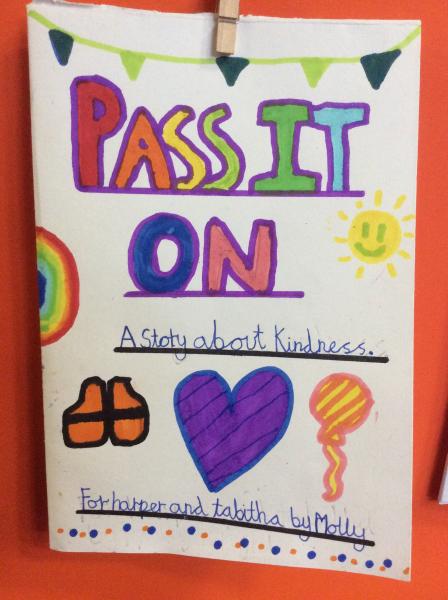 PASS IT
ON
A Story about Kindness.
For harper and tabitha by Molly